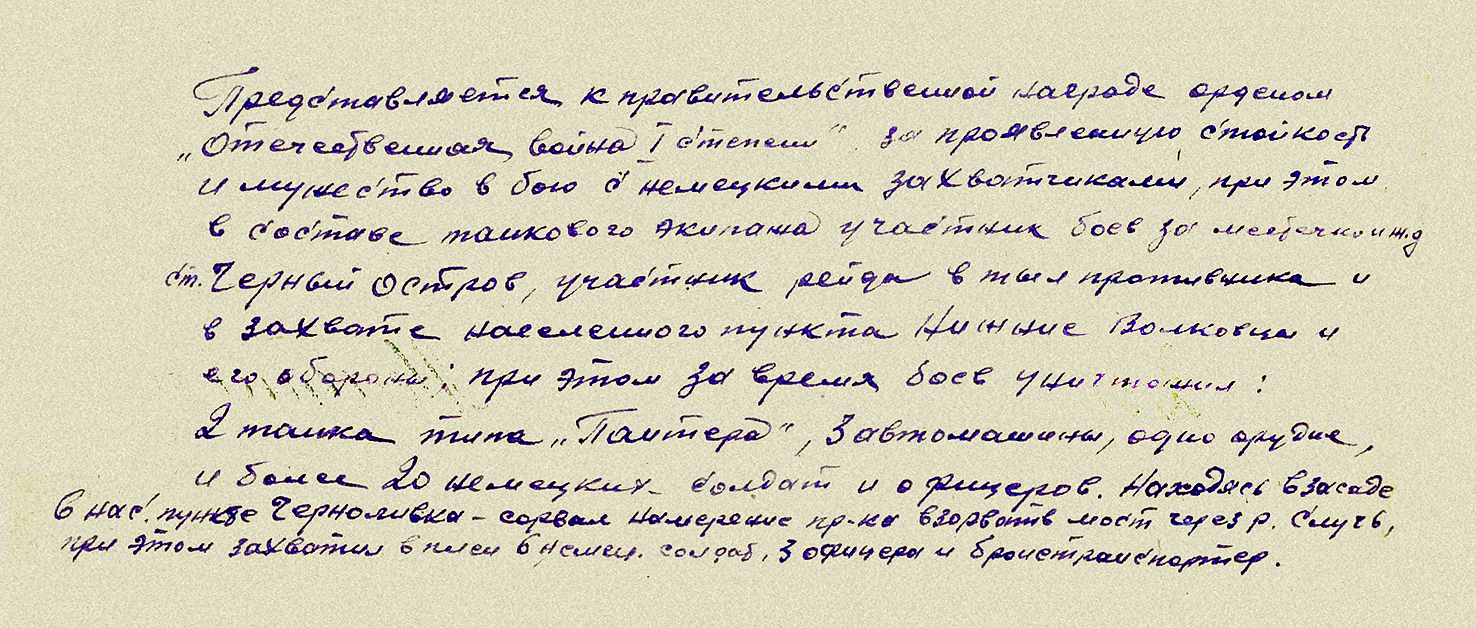 Представляется к правительственной награде орденом
„Отечественная война I степени“ за проявленную стойкость
и мужество в бою с немецкими захватчиками, при этом
в составе танкового экипажа участник боев за местечко и ж.д
ст. Черный Остров, участник рейда в тыл противника и
в захвате населенного пункта Нижние Волковцы и
его обороны; при этом за время боев уничтожил:
2 танка типа „Пантера“, 3 автомашины, одно орудие,
и более 20 немецких солдат и офицеров. Находясь в засаде
в нас. пункте Черноливка – сорвал намерение пр-ка взорвать мост через р. Случь,
при этом захватил в плен 6 немец. солдат, 3 офицера и бронетранспортер.